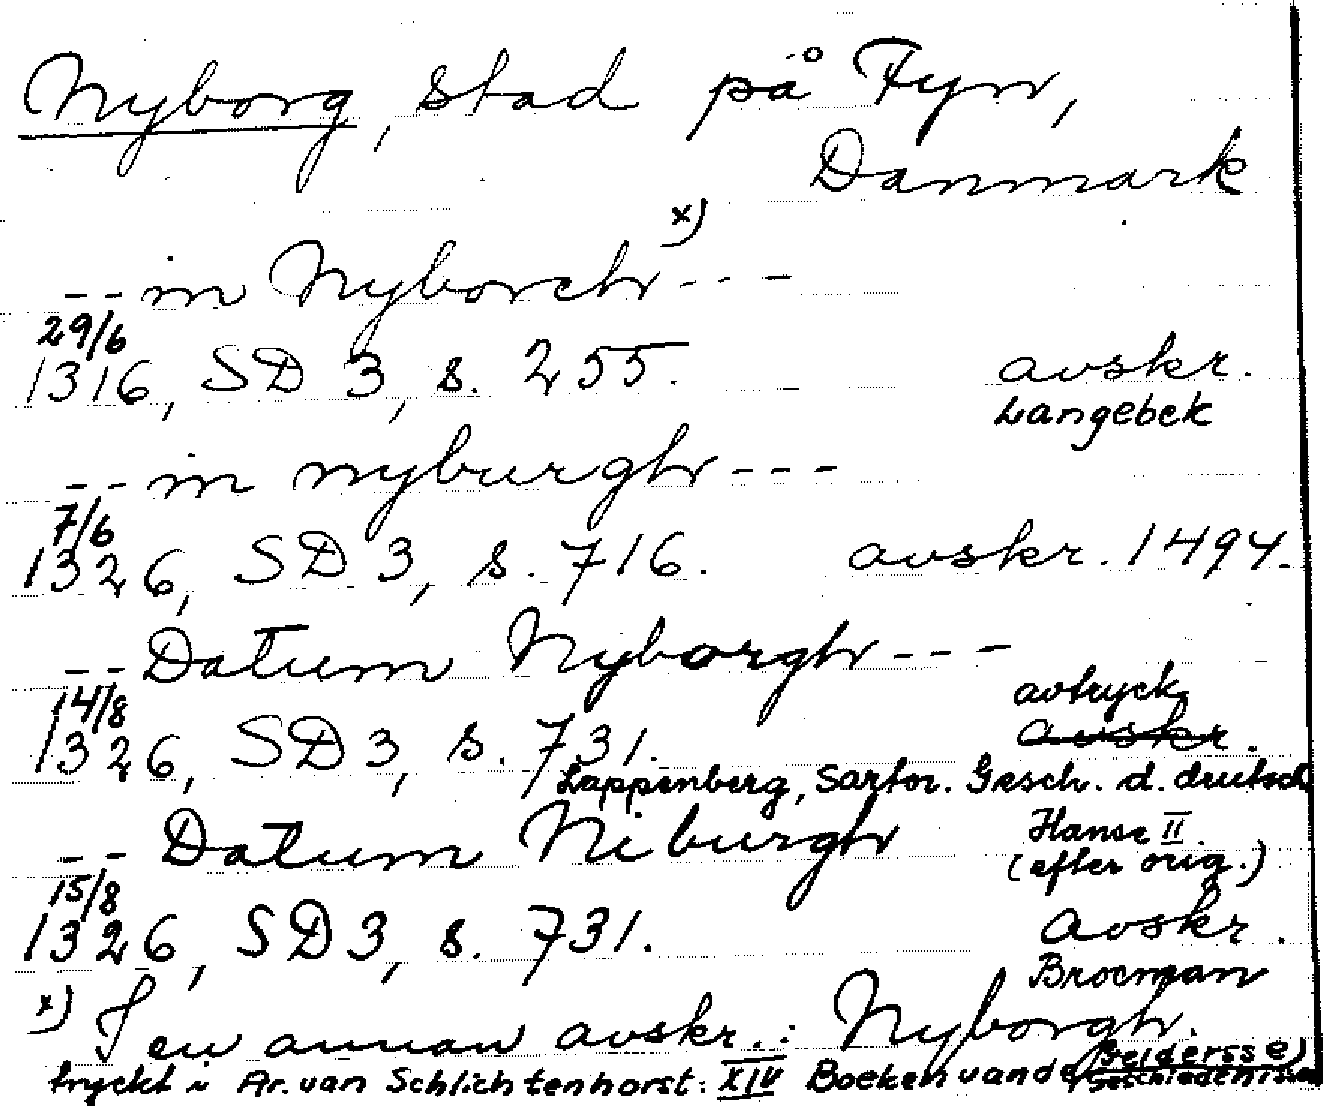 Nyborg, stad på Fyn,
Danmark
-- in Nyborch x) ---
29/6
1316, SD 3, s. 255. avskr.
Langebek
-- in nyburgh ---
7/6
1326, SD 3, s. 716. avskr. 1494.
-- Datum Nyborgh ---
14/8 avtryck
1326, SD 3, s. 731. avskr.
Lappenberg, Sartor. Gesch. d. deutsch
Hanse II.
-- Datum Niburgh
(efter orig.)
15/8
1326, SD 3, s. 731. avskr.
Brocman
x) I en annan avskr.: Nyborgh.
tryckt i Ar. van Schlichtenhorst: XIV Boeken van de